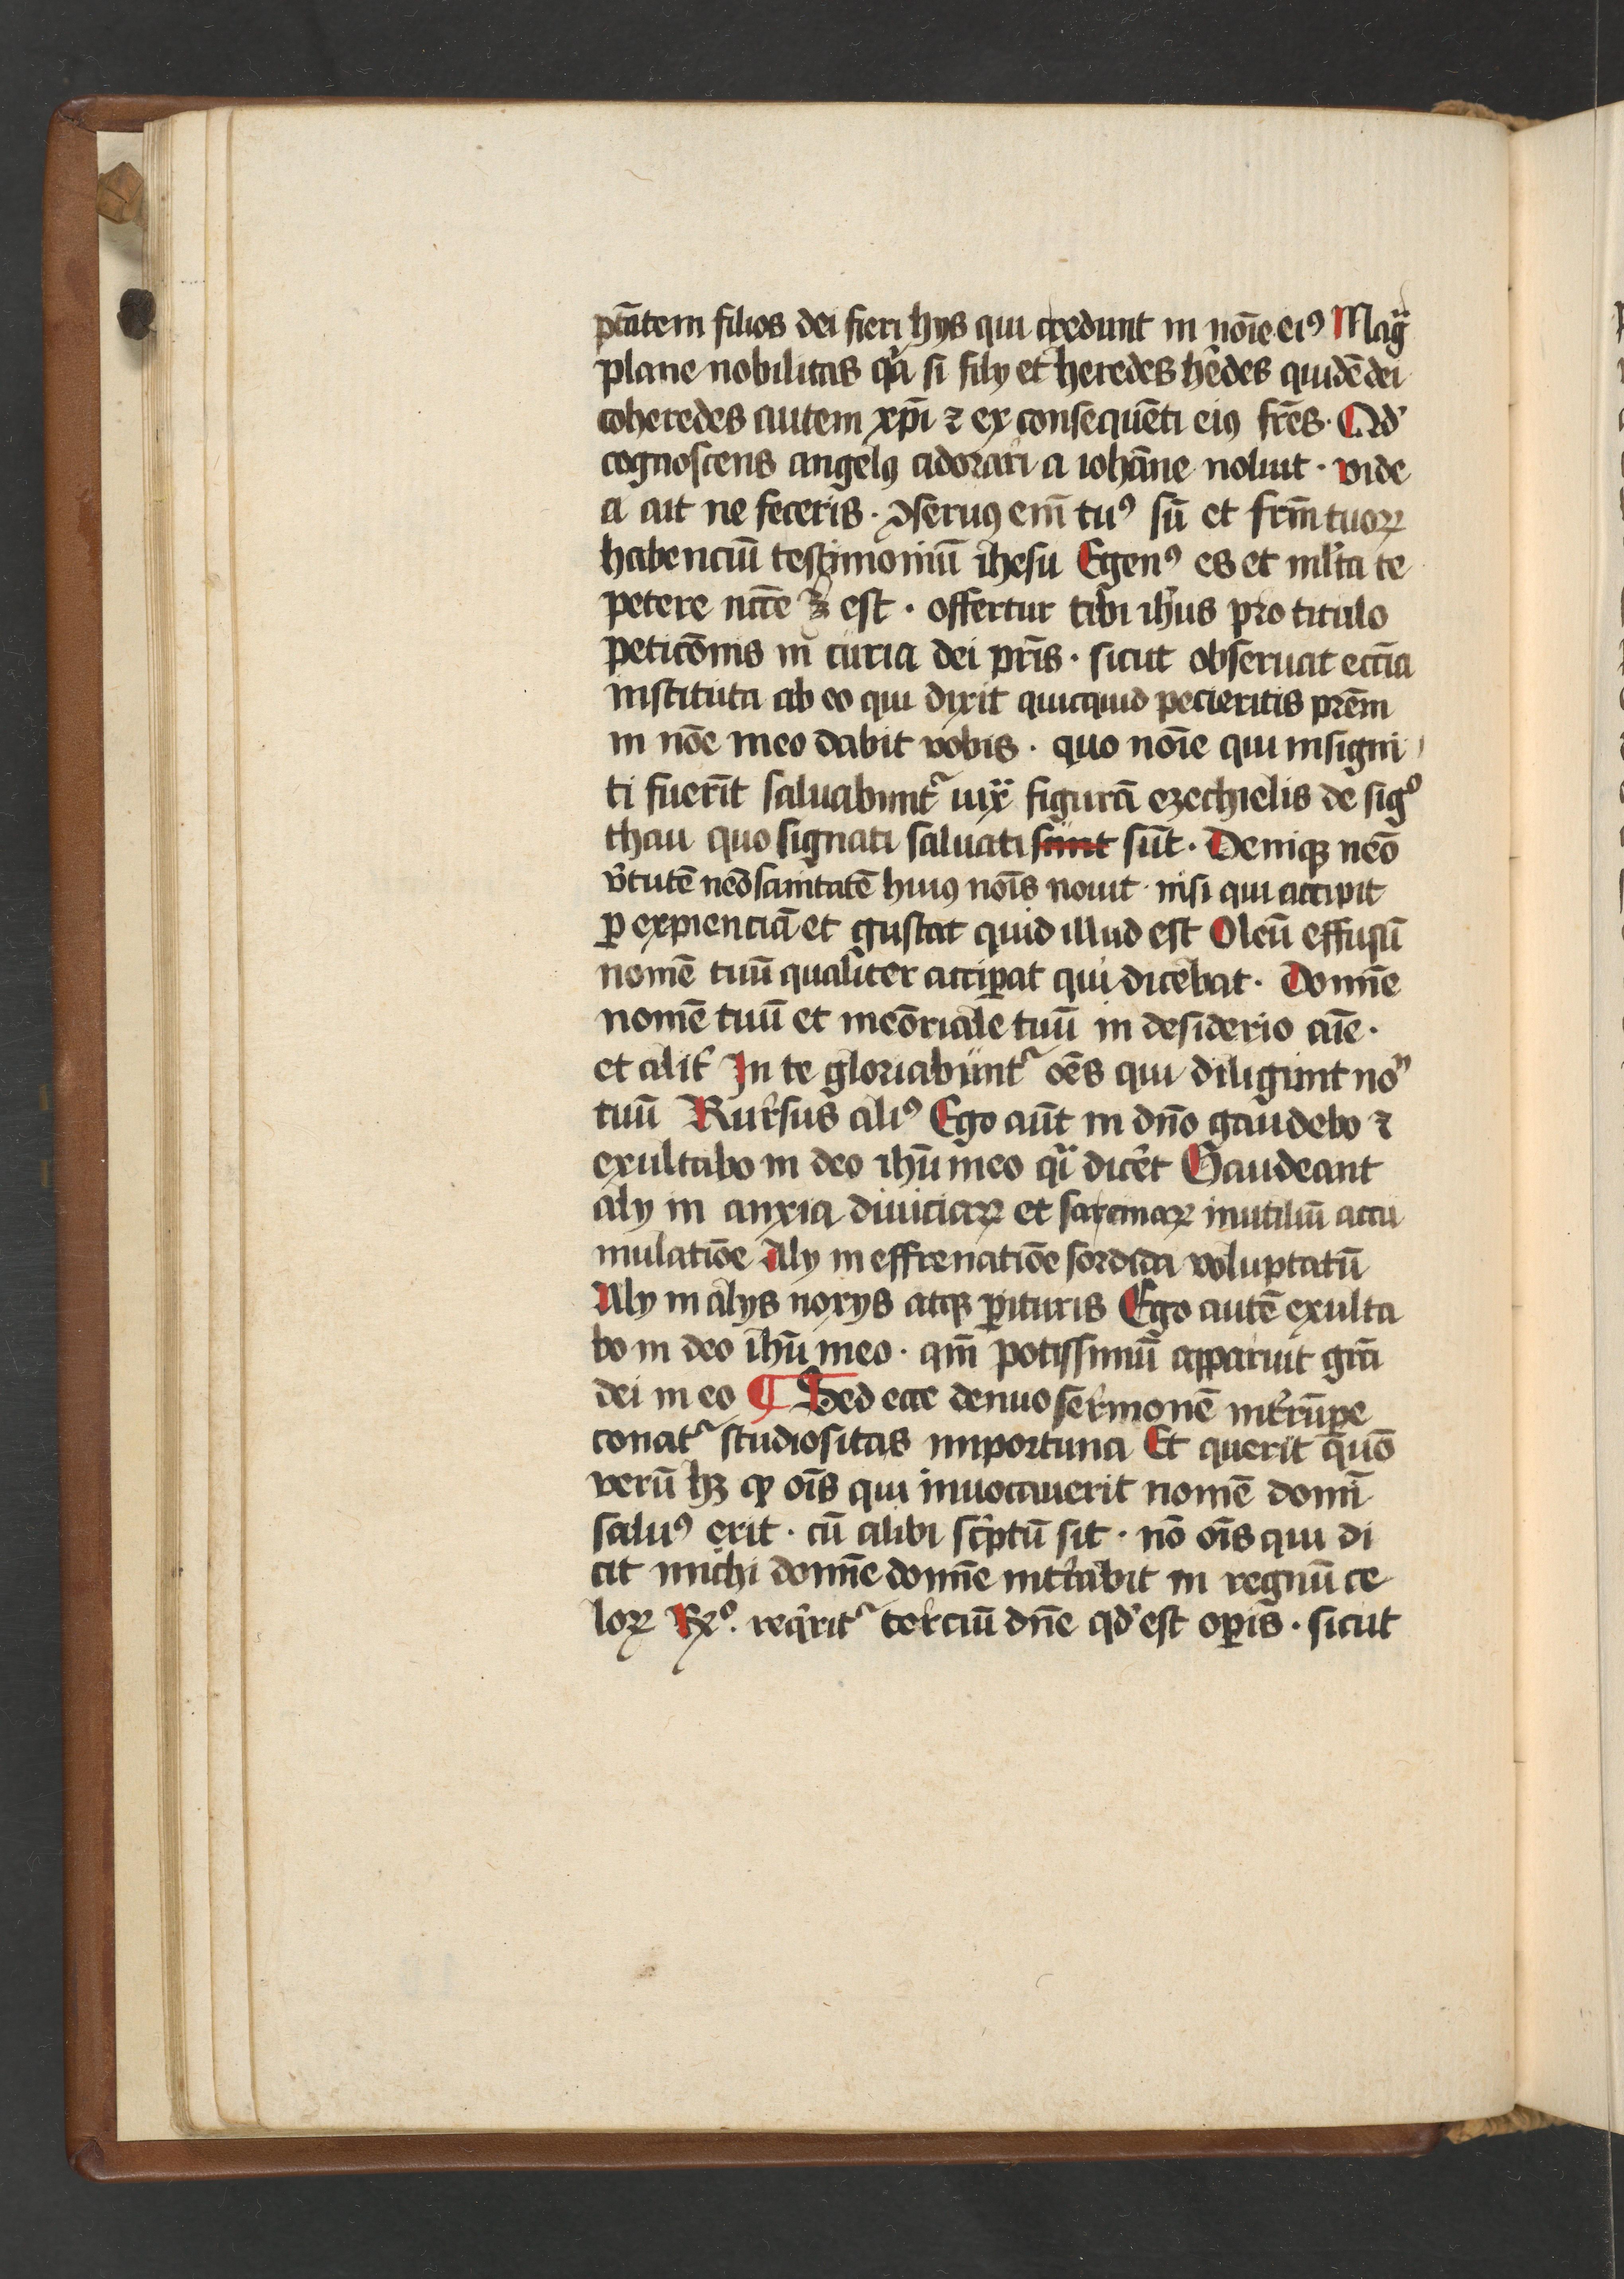 ptātem filios dei fieri hys qui credunt in noīe eiꝰ Magᷓ
plane nobilitas qᷓ si fily et heredes hēdes quidē dei
coheredes autem xp̄i ⁊ ex consequēti eiꝰ frēs · Qd'
cognoscens angelꝰ adorari a iohāne noluit · vide
a ait ne feceris · ꝯseruꝰ em̄ tuꝰ sū et frm̄ tuoꝝ
habenciū testimoniū ihesu Egenꝰ es et ml'ta te
petere ncc̄e ē est · offertur tibi ih'us pro titulo
peticōnis in curia dei pr̄is · sicut obseruat ecc̄ia
instituta ab eo qui dixit quicquid pecieritis prēm
in nōe meo dabit vobis · quo noīe qui insigni
ti fuerīt saluabuntᷣ iuxᷓ figurā ezechielis de sigº
thau quo signati saluati sunt sūt · Deniqꝫ nēo
v̄tutē necꝫ sanitatē huiꝰ noīs nouit · nisi qui accipit
ꝑ expienciā et gustat quid illud est Oleū effusū
nomē tuū qualiter acciꝑat qui dicebat · Domīe
nomē tuū et meōriale tuū in desiderio aīe ·
et alit' In te gloriabuntᷣ oēs qui diligunt noⁿ
tuū Rursus aliꝰ Ego aūt in dn̄o gaudebo ⁊
exultabo in deo ihū meo qᷓi dicēt Gaudeant
aly in anxia diuiciaꝝ et sarcinaꝝ inutiliū accu
mulatiōe Aly in effrenatiōe sordida voluptatū
Aly in alys noxys atqꝫ ꝑituris Ego autē exulta
bo in deo ihū meo · qm̄ potissimū apparuit grā
dei in eo ¶ Sed ecce denuo sermonē int'rūꝑe
conatᷣ studiositas importuna Et querit quō
verū hꝫ ꝙ oīs qui inuocauerit nomē domī
saluꝰ erit · cū alibi sc'ptū sit · nō oīs qui di
cit michi domīe domīe intrabit in regnū ce
loꝝ Rxº. req'ritᷣ terciū dn̄e qd' est oꝑis · sicut